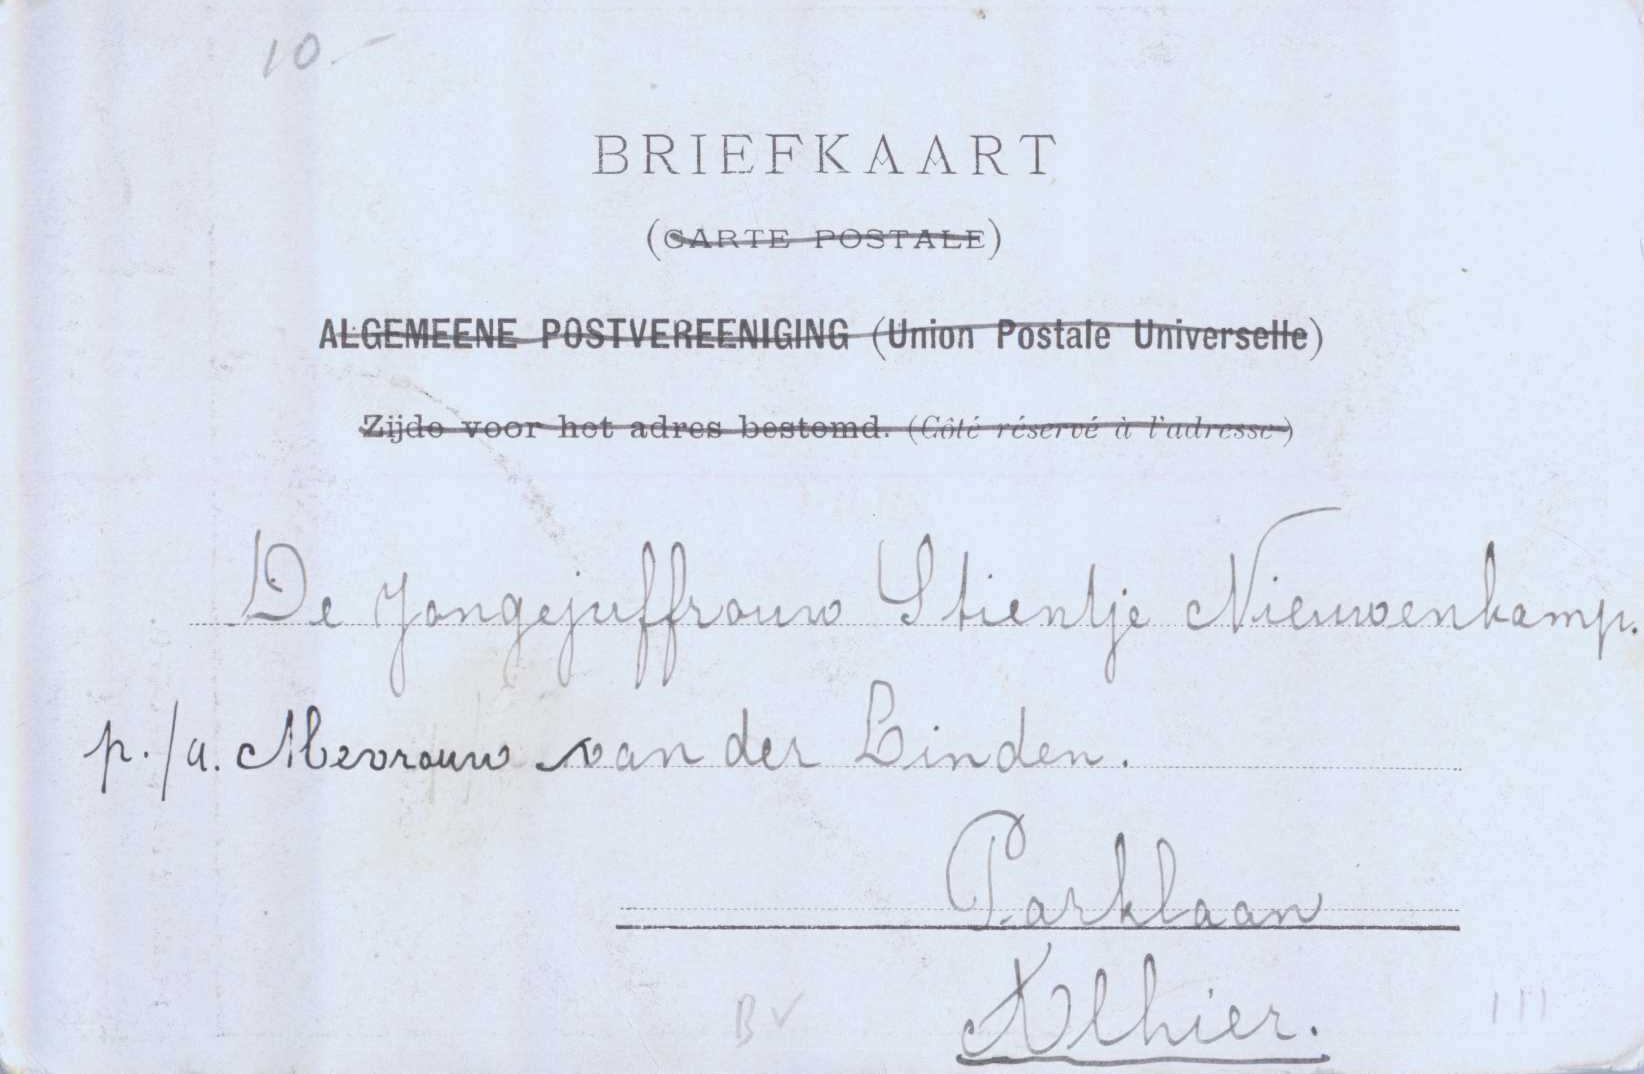 10.-
BRIEFKAART
(CARTE POSTALE)
ALGEMEENE POSTVEREENIGING (Union Postale Universelle)
Zijde voor het adres bestemd. (Côté réservé à l'adresse)
De Jongejuffrouw Stientje Nieuwenkamp.
p./a. Mevrouw van der Linden.
Parklaan
Alhier.
BV
111